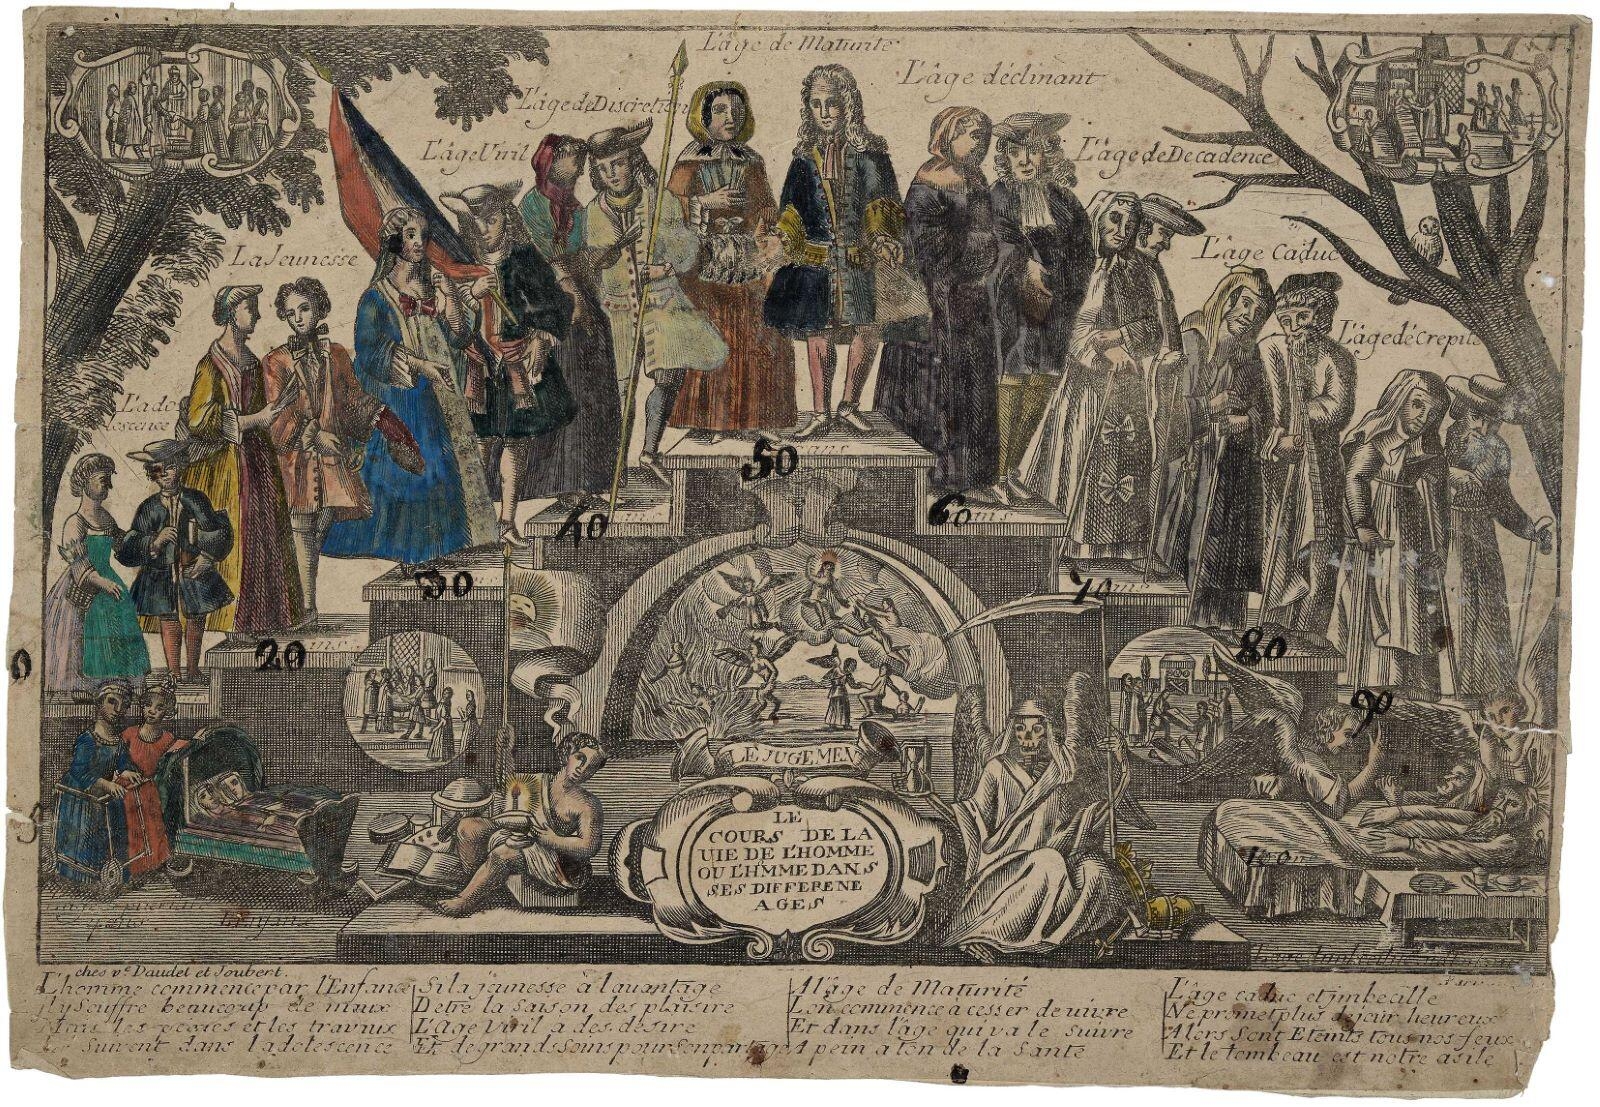 L'âge de Maturité
L'âge déclinant
L'âge de Discretion
L'âge Viril
L'âge de Decadence
La Jeunesse
L'âge Caduc
L'âge de Crepite
L'ado
lescence
50 ans
40
60 ans
30
70 ans
20
80
0
90
100
LE JUGEMEN
LE
COURS DE LA
UIE DE L'HOMME
OU L'HMME DANS
SES DIFFERENE
AGES
ches ve. Daudet et Joubert.
L'homme commence par l'Enfance
Ily souffre beaucoup de maux
Mais les et les travaux
suivent dans ladolescence
Si la jaunesse à lavantage
Detre la Saison des plaisirs
L'Age Viril a des désire
Et de grands Soins pour Son partage
A l'âge de Maturité
Lon commence a cesser de vivre
Et dans l'âge qui va le suivre
A pein a ton de la Santé
L'âge caduc et jmbecille
Ne promet plus de jour heureux
Alors Sont Eteints tous nos feux
Et le tombeau est notre asile